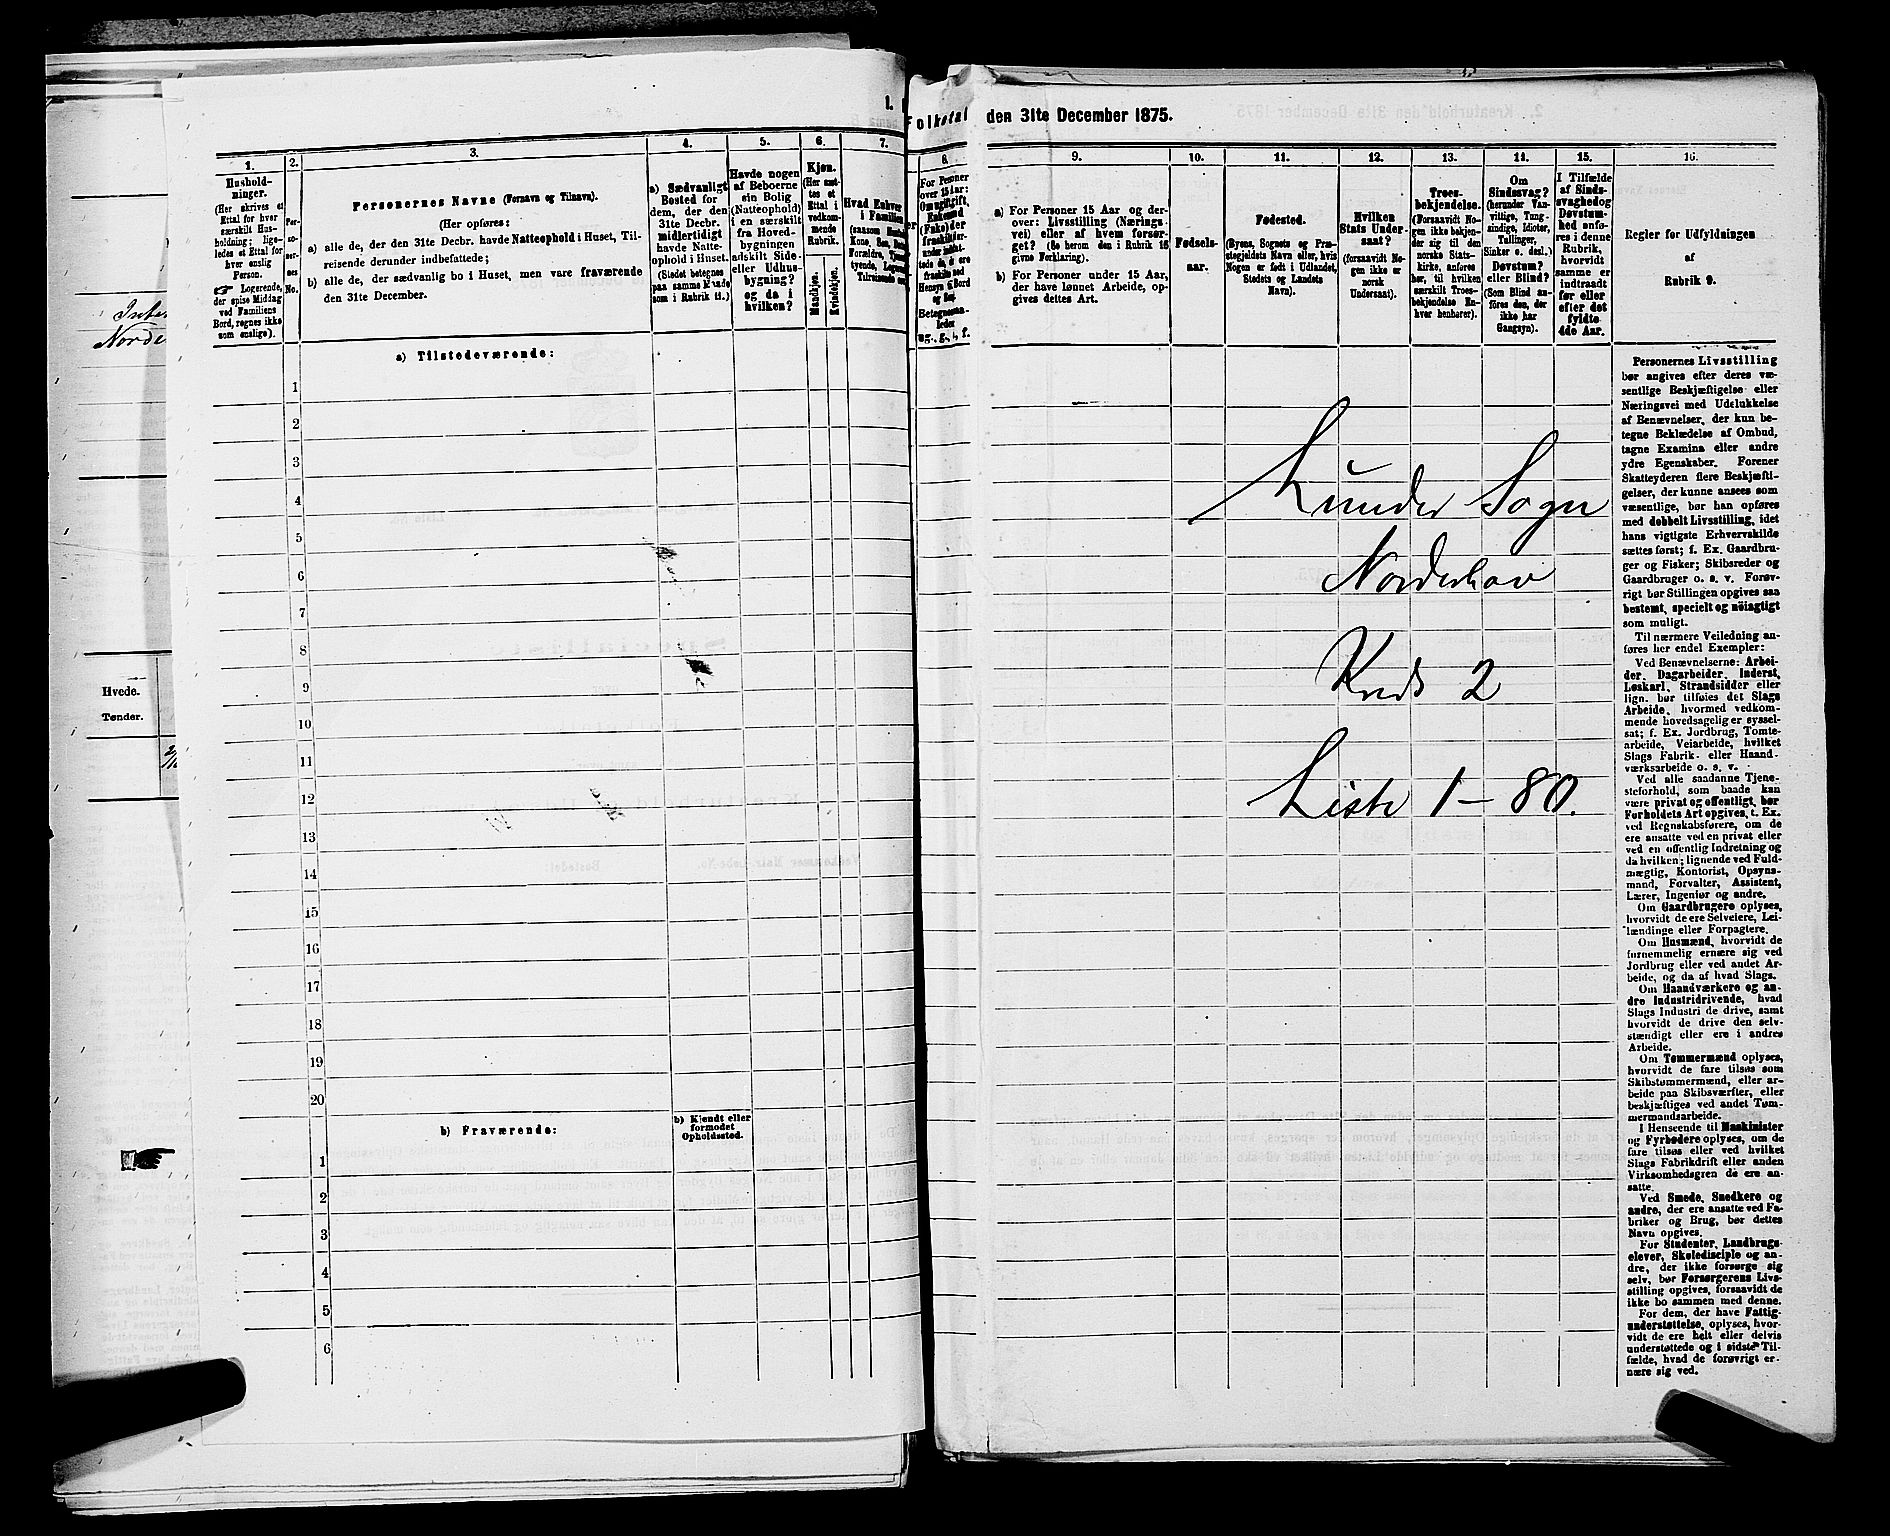 Nord
Hvede.
Tønder.
1.
Folketal
den 31te December 1875.
1.
Hushold-
ninger.
(Her skrives et
Ettal for hver
særskilt Hus-
holdning; lige-
ledes et Ettal for
hver enslig
Person.
Logerende,
der spise Middag
ved Familiens
Bord, regnes ikke
som enslige).
2.
Per-
so-
ner-
nes
No.
3.
Personernes Navne (Fornavn og Tilnavn).
(Her opføres:
a) alle de, der den 31te Decbr. havde Natteophold i Huset, Til-
reisende derunder indbefattede;
b) alle de, der sædvanlig bo i Huset, men vare fraværende
den 31te December.
4.
a) Sædvanligt
Bosted for
dem, der den
31te Decbr.
midlertidigt
havde Natte-
ophold i Huset.
(Stedet betegnes
paa samme Maade
som i Rubrik 11.)
5.
Havde nogen
af Beboerne
sin Bolig
(Natteophold)
i en særskilt
fra Hoved-
bygningen
adskilt Side-
eller Udhus-
bygning?
og da i
hvilken?
6.
Kjøn.
(Her sæt-
tes et
Ettal i
vedkom-
mende
Rubrik.
Mandkjøn.
Kvindekjøn.
7.
Hvad Enhver
i Familien
(saasom
Kone, Søn,
Forældre,
tyende,
Tilreisende
8.
For Personer
over 15 Aar:
Omugift,
Enkemand
(Enke) eller
fraskilt
Betegnes saa-
ledes
ug., g., e., f.
9.
a) For Personer 15 Aar og der-
over: Livsstilling (Nærings-
vei) eller af hvem forsør-
get? (Se herom den i Rubrik 16
givne Forklaring).
b) For Personer under 15 Aar,
der have lønnet Arbeide, op-
gives dettes Art.
10.
Fødsels-
aar.
11.
Fødested.
(Byens, Sognets og Præ-
stegjeldets Navn eller, hvis
Nogen er født i Udlandet,
Stedets og Landets
Navn).
12.
Hvilken
Stats Under-
saat?
(forsaavidt No-
gen ikke er
norsk
Undersaat).
13.
Troes-
bekjendelse.
(Forsaavidt No-
gen ikke bekjen-
der sig til den
norske Stats-
kirke, anføres
her, til hvilken
særskilt Troes-
bekjendelse En-
hver henhører).
14.
Om
Sindssvag?
(herunder Van-
vittige, Tung-
sindige, Idioter,
Tullinger,
Sinker o. desl.)
Døvstum?
eller Blind?
(Som Blind an-
føres den, der
ikke har
Gangsyn).
15.
I Tilfælde
af Sinds-
svaghed og
Døvstum-
hed anfø-
res i denne
Rubrik,
hvorvidt
samme er
indtraadt
før eller
efter det
fyldte
4de Aar.
16.
Regler for Udfyldningen
af
Rubrik 9.
a) Tilstedeværende:
1
2
3
4
5
6
7
8
9
10
11
12
13
14
15
16
17
18
19
20
b) Fraværende:
b) Kjendt eller
formodet
Opholdssted.
1
2
3
4
5
6
Lunder Sogn
Norderhov
Kreds 2
Liste 1 – 80.
Personernes Livsstilling
bør angives efter deres væ-
sentlige Beskjæftigelse eller
Næringsvei med Udelukkelse
af Benævnelser, der kun be-
tegne Beklædelse af Ombud,
tagne Examina eller andre
ydre Egenskaber. Forener
Skatteyderen flere Beskjæfti-
gelser, der kunne ansees som
væsentlige, bør han opføres
med dobbelt Livsstilling, idet
hans vigtigste Erhvervskilde
sættes først; f. Ex. Gaardbru-
ger og Fisker; Skibsreder og
Gaardbruger o. s. v. Forøv-
rigt bør Stillingen opgives saa
bestemt, specielt og nøiagtigt
som muligt.
Til nærmere Veiledning an-
føres her endel Exempler:
Ved Benævnelserne: Arbei-
der, Dagarbeider, Inderst,
Løskarl, Strandsidder eller
lign. bør tilføies det Slags
Arbeide, hvormed vedkom-
mende hovedsagelig er syssel-
sat; f. Ex. Jordbrug, Tomte-
arbeide, Veiarbeide, hvilket
Slags Fabrik- eller Haand-
værksarbeide o. s. v.
Ved alle saadanne Tjene-
steforhold, som baade kan
være privat og offentligt, bør
Forholdets Art opgives, t. Ex.
ved Regnskabsførere, om de
ere ansatte ved en privat eller
ved en offentlig Indretning og
da hvilken; lignende ved Fuld-
mægtig, Kontorist, Opsyns-
mand, Forvalter, Assistent,
Lærer, Ingeniør og andre.
Om Gaardbrugere oplyses,
hvorvidt de ere Selveiere, Lei-
lændinge eller Forpagtere.
Om Husmænd, hvorvidt de
fornemmelig ernære sig ved
Jordbrug eller ved andet Ar-
beide, og da af hvad Slags.
Om Haandværkere og an-
dre Industridrivende, hvad
Slags Industri de drive, samt
hvorvidt de drive den selv-
stændigt eller ere i andres
Arbeide.
Om Tømmermænd oplyses,
hvorvidt de fare tilsøs som
Skibstømmermænd, eller ar-
beide paa Skibsværfter, eller
beskjæftiges ved andet Tøm-
mermandsarbeide.
I Henseende til Maskinister
og Fyrbødere oplyses, om de
fare tilsøs eller ved hvilket
Slags Fabrikdrift eller anden
Virksomhedsgren de ere an-
satte.
Ved Smede, Snedkere og
andre, der ere ansatte ved Fa-
briker og Brug, bør dettes
Navn opgives.
For Studenter, Landbrugs-
elever, Skoledisciple og an-
dre, der ikke forsørge sig
selv, bør Forsørgerens Livs-
stilling opgives, forsaavidt de
ikke bo sammen med denne.
For dem, der have Fattig-
understøttelse, oplyses, hvor-
vidt de ere helt eller delvis
understøttede og i sidste Til-
fælde, hvad de forøvrigt er-
nære sig ved.